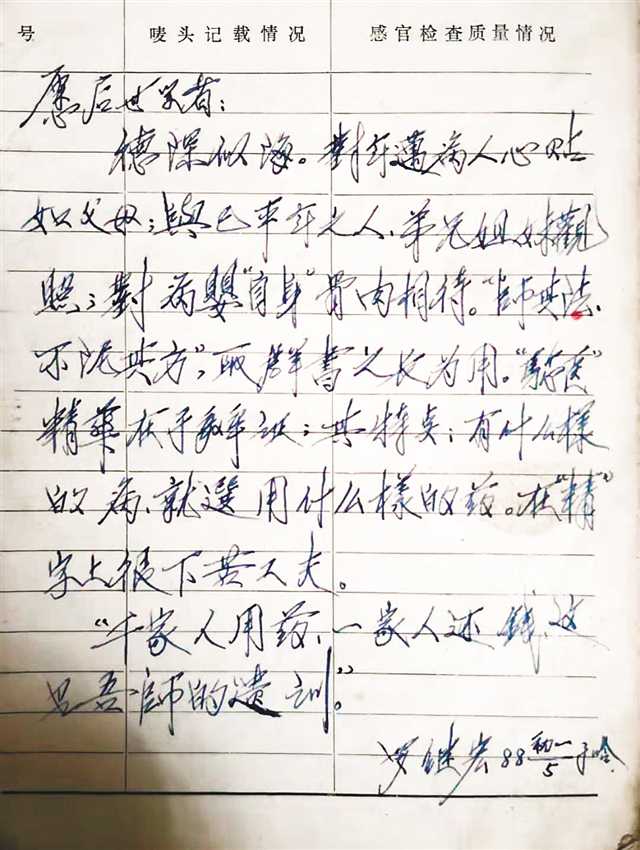 号 唛头记载情况 感官检查质量情况
愿后世学者:
德深似海。對年邁病人心贴
如父母;與己平年之人、弟兄姐妹觀
照;對病嬰"自身"骨肉相待。"師其法、
不泥其方",取群書之长为用。
精華在于辩证;其特点:有什么樣
的病、就選用什么樣的药。在"精"
字上很下苦工夫。
"千家人用药、一家人还钱、这
是吾師的遗训"。
罗继宏 88 初一/5 于哈